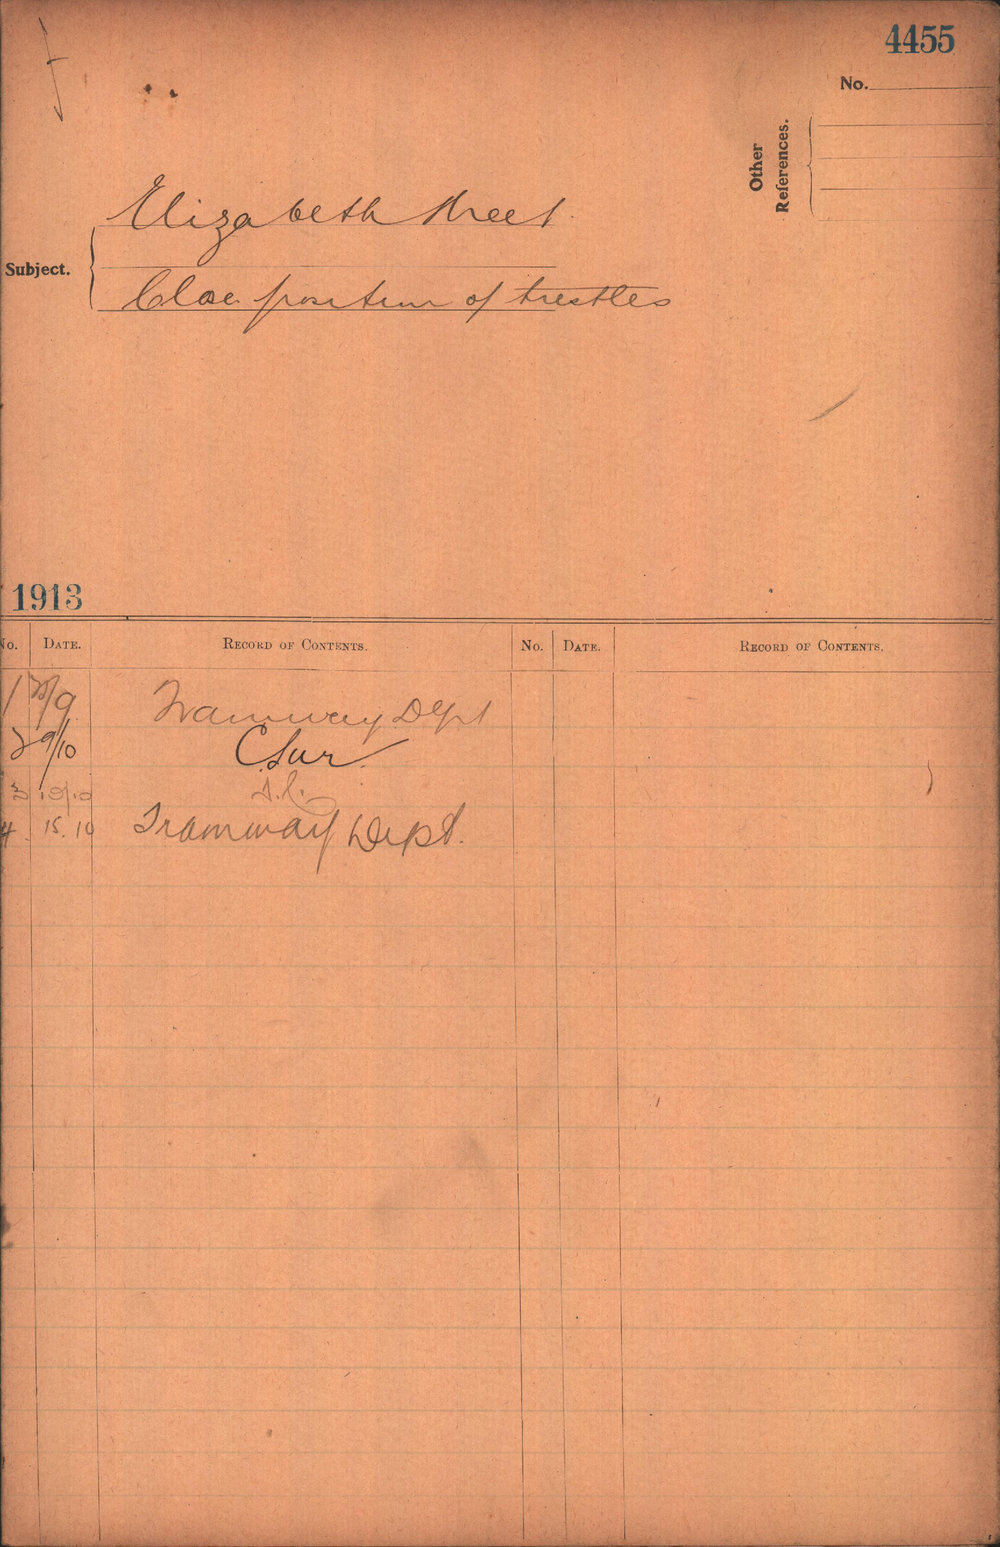 4455
No.
Other
References.
Elizabeth Street
Subject.
Close position of trestles
1913
No. DATE. RECORD OF CONTENTS. No. DATE. RECORD OF CONTENTS.
1 /9 Tramway Dept
2 9/10 C. Sur.
3 10/10
4 15.10 Tramway Dept.